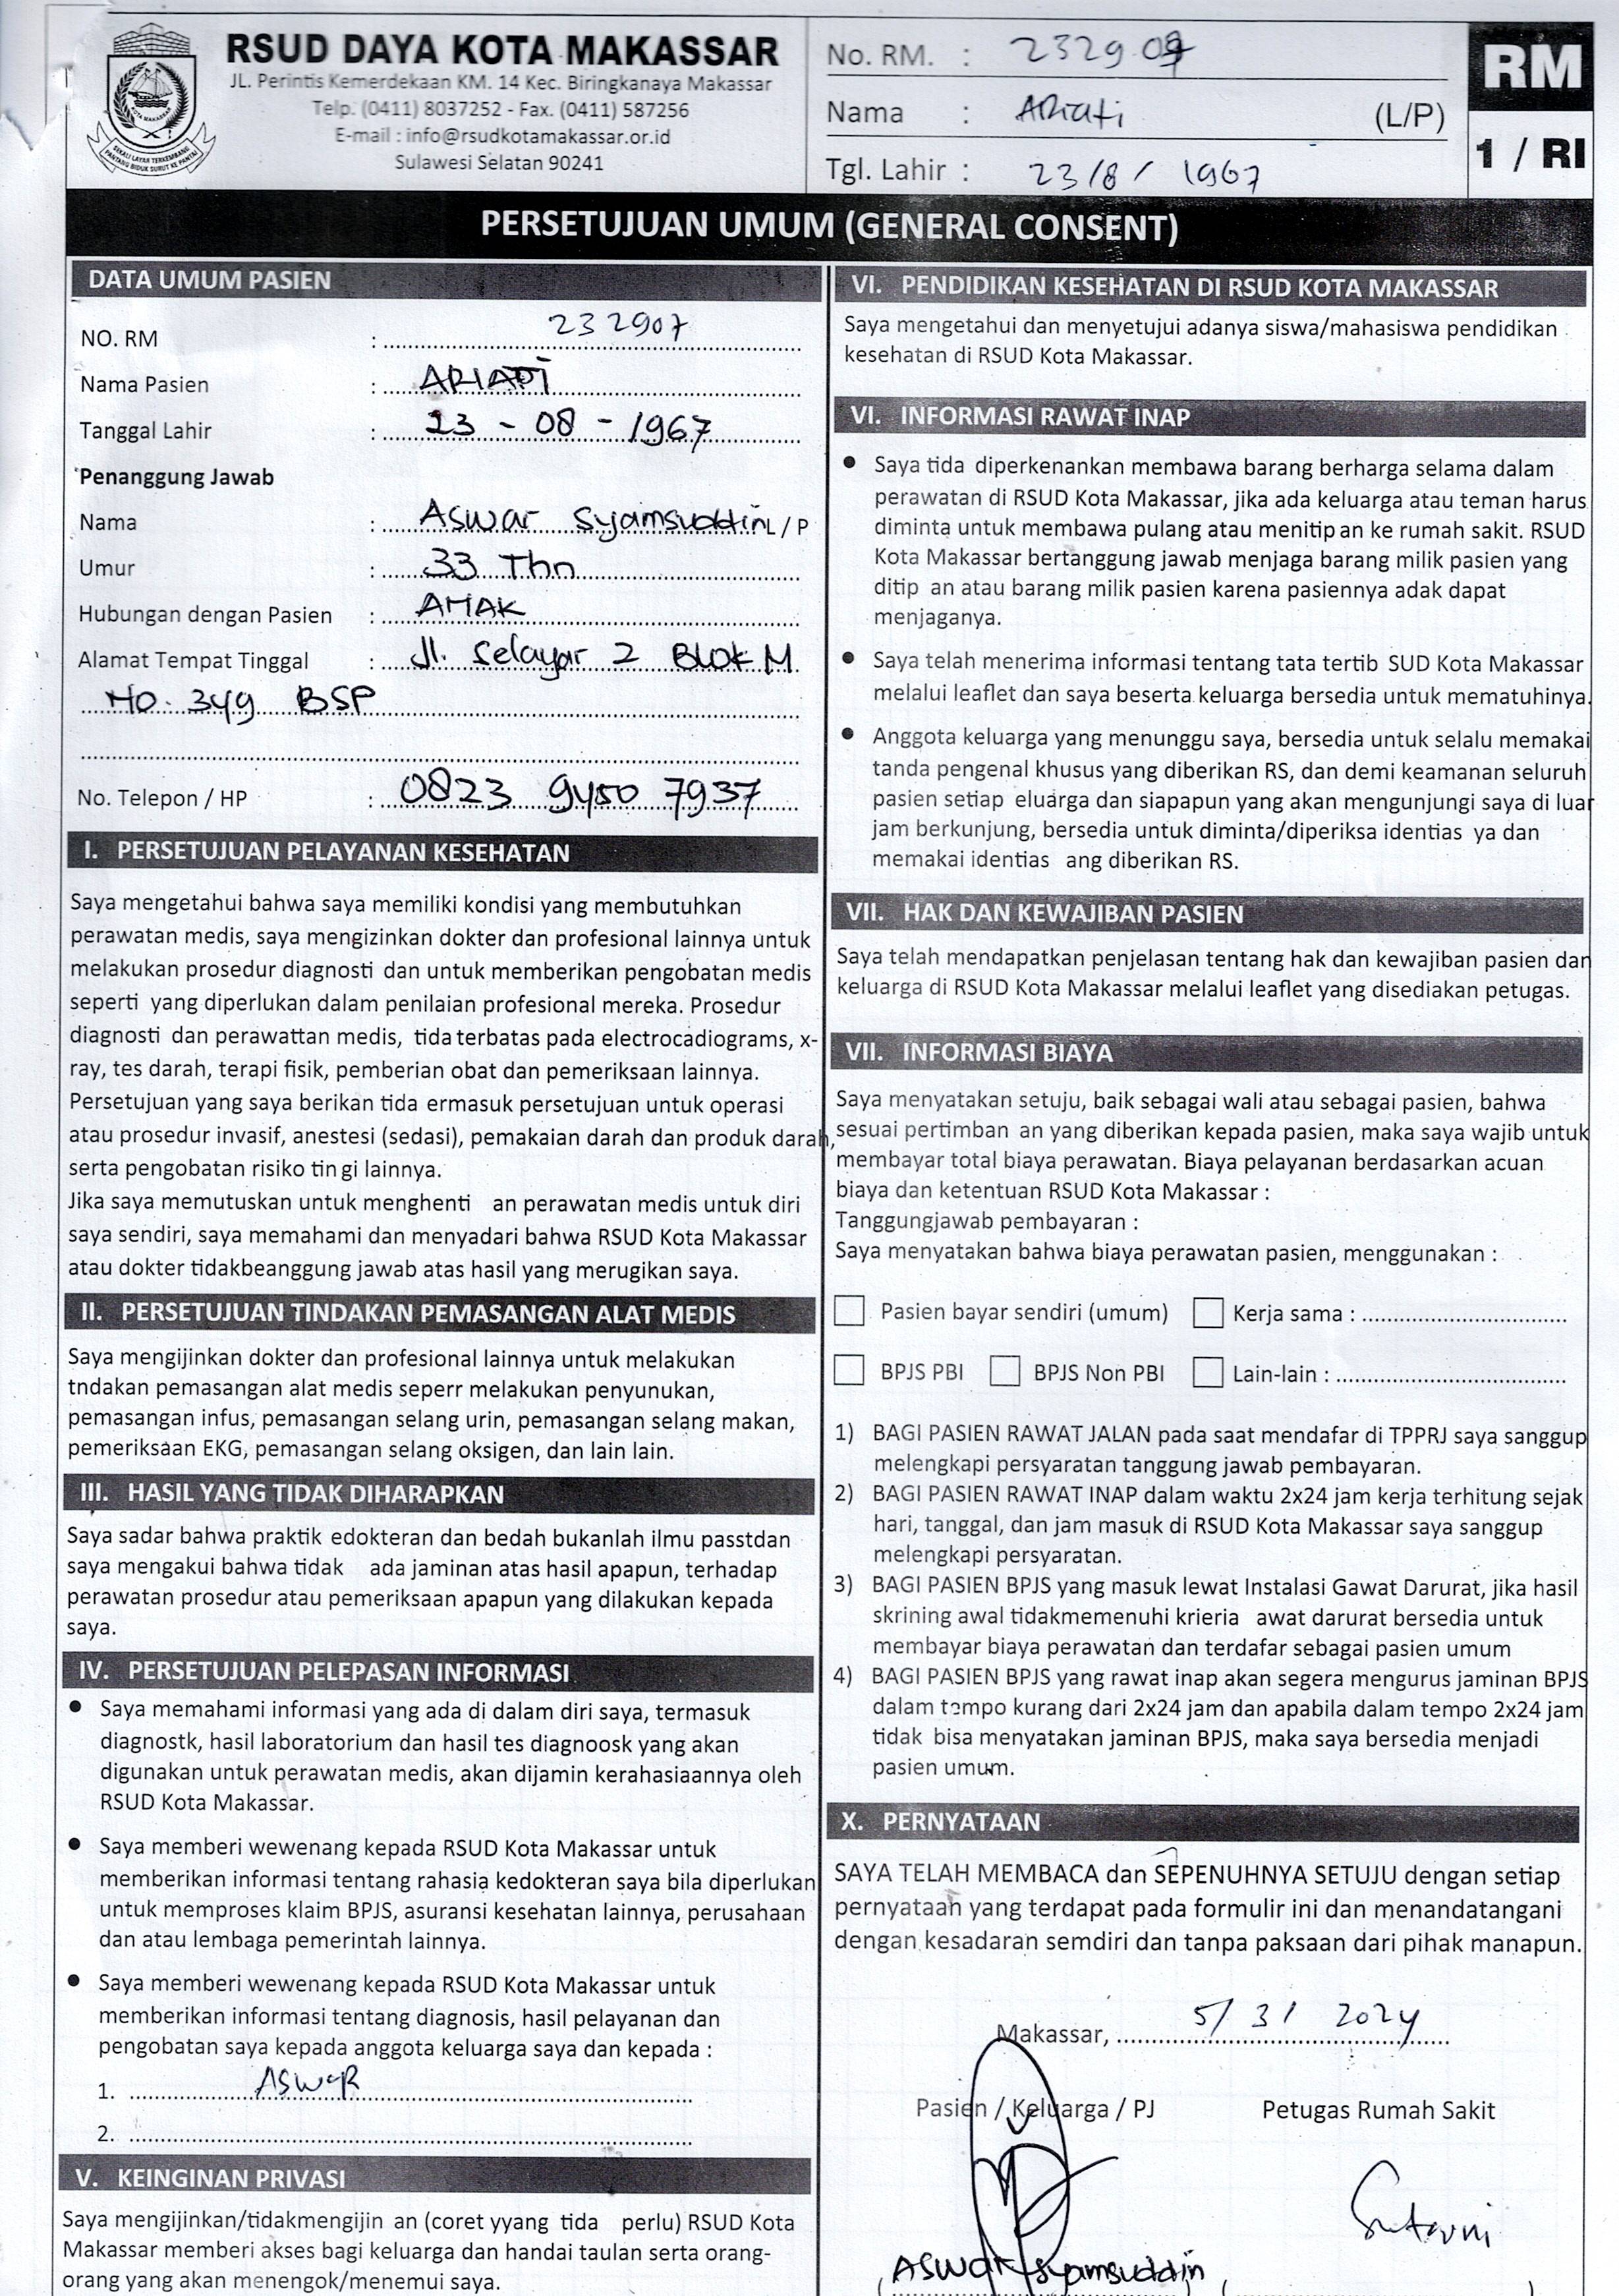 RSUD DAYA KOTA MAKASSAR
JL. Perintis Kemerdekaan KM. 14 Kec. Biringkanaya Makassar
Telp. (0411) 8037252 - Fax. (0411) 587256
E-mail : info@rsudkotamakassar.or.id
Sulawesi Selatan 90241
KOTA MAKASSAR
SEKALI LAYAR TERKEMBANG
PANTANG BIDUK SURUT KE PANTAI
No. RM. : 232907
Nama : Ariati (L/P)
Tgl. Lahir : 23/8/ 1967
RM
1 / RI
PERSETUJUAN UMUM (GENERAL CONSENT)
DATA UMUM PASIEN
NO. RM : 232907
Nama Pasien : ARIATI
Tanggal Lahir : 23 - 08 - 1967
Penanggung Jawab
Nama : Aswar Syamsuddin L / P
Umur : 33 Thn
Hubungan dengan Pasien : ANAK
Alamat Tempat Tinggal : Jl. Selayar 2 Blok M
No. 349 BSP
No. Telepon / HP : 0823 9450 7937
I. PERSETUJUAN PELAYANAN KESEHATAN
Saya mengetahui bahwa saya memiliki kondisi yang membutuhkan
perawatan medis, saya mengizinkan dokter dan profesional lainnya untuk
melakukan prosedur diagnosti dan untuk memberikan pengobatan medis
seperti yang diperlukan dalam penilaian profesional mereka. Prosedur
diagnosti dan perawattan medis, tida terbatas pada electrocadiograms, x-
ray, tes darah, terapi fisik, pemberian obat dan pemeriksaan lainnya.
Persetujuan yang saya berikan tida ermasuk persetujuan untuk operasi
atau prosedur invasif, anestesi (sedasi), pemakaian darah dan produk darah,
serta pengobatan risiko tin gi lainnya.
Jika saya memutuskan untuk menghenti an perawatan medis untuk diri
saya sendiri, saya memahami dan menyadari bahwa RSUD Kota Makassar
atau dokter tidakbeanggung jawab atas hasil yang merugikan saya.
II. PERSETUJUAN TINDAKAN PEMASANGAN ALAT MEDIS
Saya mengijinkan dokter dan profesional lainnya untuk melakukan
tndakan pemasangan alat medis seperr melakukan penyunukan,
pemasangan infus, pemasangan selang urin, pemasangan selang makan,
pemeriksaan EKG, pemasangan selang oksigen, dan lain lain.
III. HASIL YANG TIDAK DIHARAPKAN
Saya sadar bahwa praktik edokteran dan bedah bukanlah ilmu passtdan
saya mengakui bahwa tidak ada jaminan atas hasil apapun, terhadap
perawatan prosedur atau pemeriksaan apapun yang dilakukan kepada
saya.
IV. PERSETUJUAN PELEPASAN INFORMASI
● Saya memahami informasi yang ada di dalam diri saya, termasuk
diagnostk, hasil laboratorium dan hasil tes diagnoosk yang akan
digunakan untuk perawatan medis, akan dijamin kerahasiaannya oleh
RSUD Kota Makassar.
● Saya memberi wewenang kepada RSUD Kota Makassar untuk
memberikan informasi tentang rahasia kedokteran saya bila diperlukan
untuk memproses klaim BPJS, asuransi kesehatan lainnya, perusahaan
dan atau lembaga pemerintah lainnya.
● Saya memberi wewenang kepada RSUD Kota Makassar untuk
memberikan informasi tentang diagnosis, hasil pelayanan dan
pengobatan saya kepada anggota keluarga saya dan kepada :
1. ASWAR
2.
V. KEINGINAN PRIVASI
Saya mengijinkan/tidakmengijin an (coret yyang tida perlu) RSUD Kota
Makassar memberi akses bagi keluarga dan handai taulan serta orang-
orang yang akan menengok/menemui saya.
VI. PENDIDIKAN KESEHATAN DI RSUD KOTA MAKASSAR
Saya mengetahui dan menyetujui adanya siswa/mahasiswa pendidikan
kesehatan di RSUD Kota Makassar.
VI. INFORMASI RAWAT INAP
● Saya tida diperkenankan membawa barang berharga selama dalam
perawatan di RSUD Kota Makassar, jika ada keluarga atau teman harus
diminta untuk membawa pulang atau menitip an ke rumah sakit. RSUD
Kota Makassar bertanggung jawab menjaga barang milik pasien yang
ditip an atau barang milik pasien karena pasiennya adak dapat
menjaganya.
● Saya telah menerima informasi tentang tata tertib SUD Kota Makassar
melalui leaflet dan saya beserta keluarga bersedia untuk mematuhinya.
● Anggota keluarga yang menunggu saya, bersedia untuk selalu memakai
tanda pengenal khusus yang diberikan RS, dan demi keamanan seluruh
pasien setiap eluarga dan siapapun yang akan mengunjungi saya di luar
jam berkunjung, bersedia untuk diminta/diperiksa identias ya dan
memakai identias ang diberikan RS.
VII. HAK DAN KEWAJIBAN PASIEN
Saya telah mendapatkan penjelasan tentang hak dan kewajiban pasien dan
keluarga di RSUD Kota Makassar melalui leaflet yang disediakan petugas.
VII. INFORMASI BIAYA
Saya menyatakan setuju, baik sebagai wali atau sebagai pasien, bahwa
sesuai pertimban an yang diberikan kepada pasien, maka saya wajib untuk
membayar total biaya perawatan. Biaya pelayanan berdasarkan acuan
biaya dan ketentuan RSUD Kota Makassar :
Tanggungjawab pembayaran :
Saya menyatakan bahwa biaya perawatan pasien, menggunakan :
Pasien bayar sendiri (umum) Kerja sama :
BPJS PBI BPJS Non PBI Lain-lain :
1) BAGI PASIEN RAWAT JALAN pada saat mendafar di TPPRJ saya sanggup
melengkapi persyaratan tanggung jawab pembayaran.
2) BAGI PASIEN RAWAT INAP dalam waktu 2x24 jam kerja terhitung sejak
hari, tanggal, dan jam masuk di RSUD Kota Makassar saya sanggup
melengkapi persyaratan.
3) BAGI PASIEN BPJS yang masuk lewat Instalasi Gawat Darurat, jika hasil
skrining awal tidakmemenuhi krieria awat darurat bersedia untuk
membayar biaya perawatan dan terdafar sebagai pasien umum
4) BAGI PASIEN BPJS yang rawat inap akan segera mengurus jaminan BPJS
dalam tempo kurang dari 2x24 jam dan apabila dalam tempo 2x24 jam
tidak bisa menyatakan jaminan BPJS, maka saya bersedia menjadi
pasien umum.
X. PERNYATAAN
SAYA TELAH MEMBACA dan SEPENUHNYA SETUJU dengan setiap
pernyataan yang terdapat pada formulir ini dan menandatangani
dengan kesadaran semdiri dan tanpa paksaan dari pihak manapun.
Makassar, 5/ 3/ 2024
Pasien / Keluarga / PJ Petugas Rumah Sakit
Aswar Syamsuddin